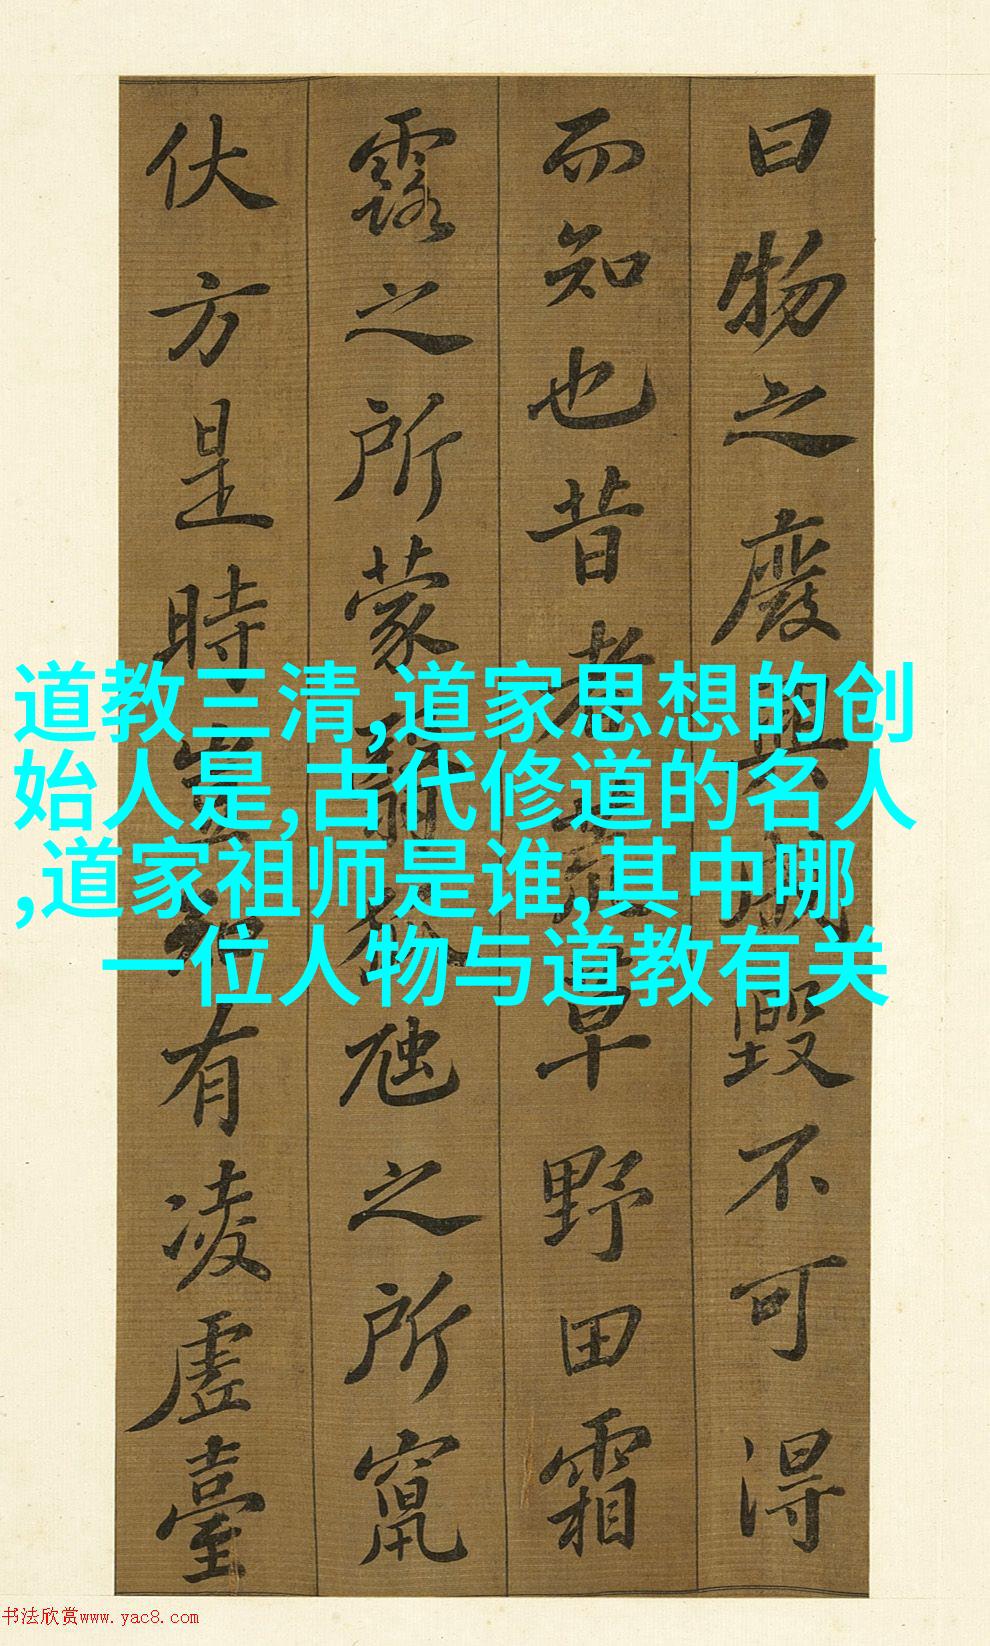 曰物之廢興成毀不可得
而知也昔者荒草野田霜
露之所蒙翳狐虺之所竄
伏方是時豈知有凌虛臺
道教三清,道家思想的创
始人是,古代修道的名人
,道家祖师是谁,其中哪
一位人物与道教有关
书法欣赏www.yac8.com